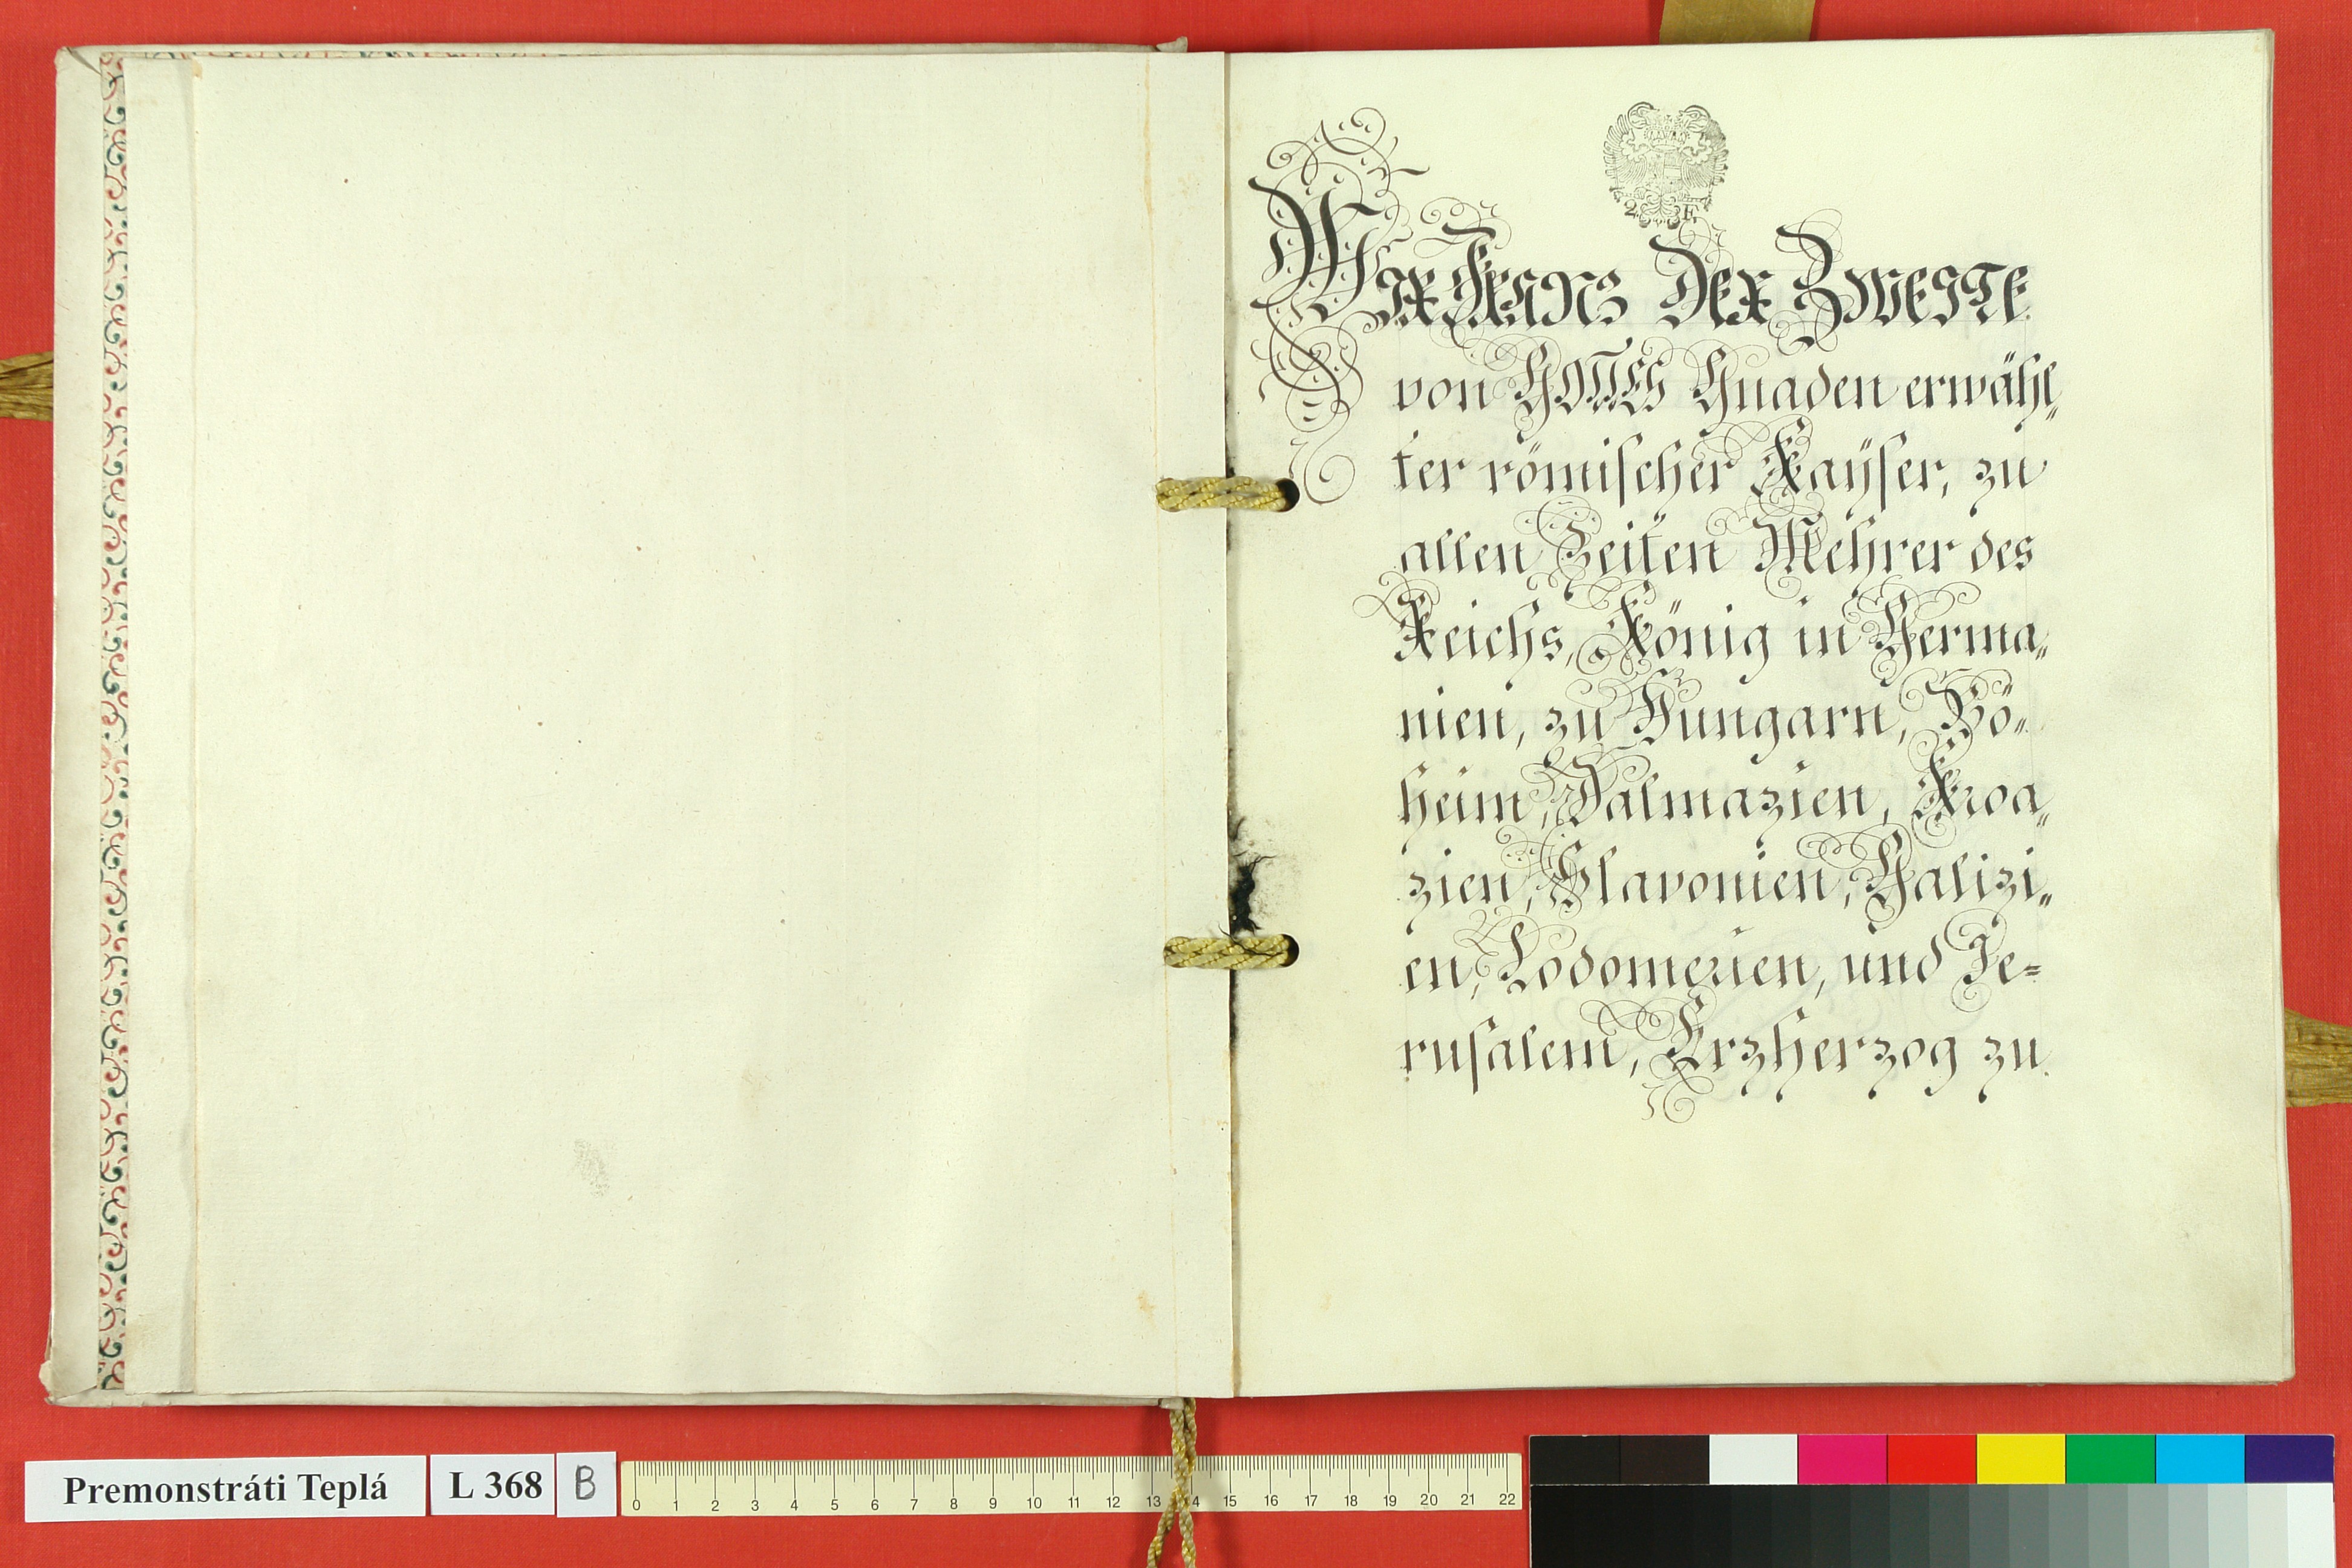 2 F.
Wir Franz Der Zweite
von GOTTES Gnaden erwähl„
ter römischer Kaÿser, zu
allen Zeiten Mehrer des
Reichs, König in Germa„
nien, zu Hungarn, Bö„
heim, Dalmazien, Kroa„
zien, Slavonien, Galizi„
en, Lodomerien, und Je=
rusalem, Erzherzog zu
Premonstráti Teplá L 368 B
0 1 2 3 4 5 6 7 8 9 10 11 12 13 14 15 16 17 18 19 20 21 22